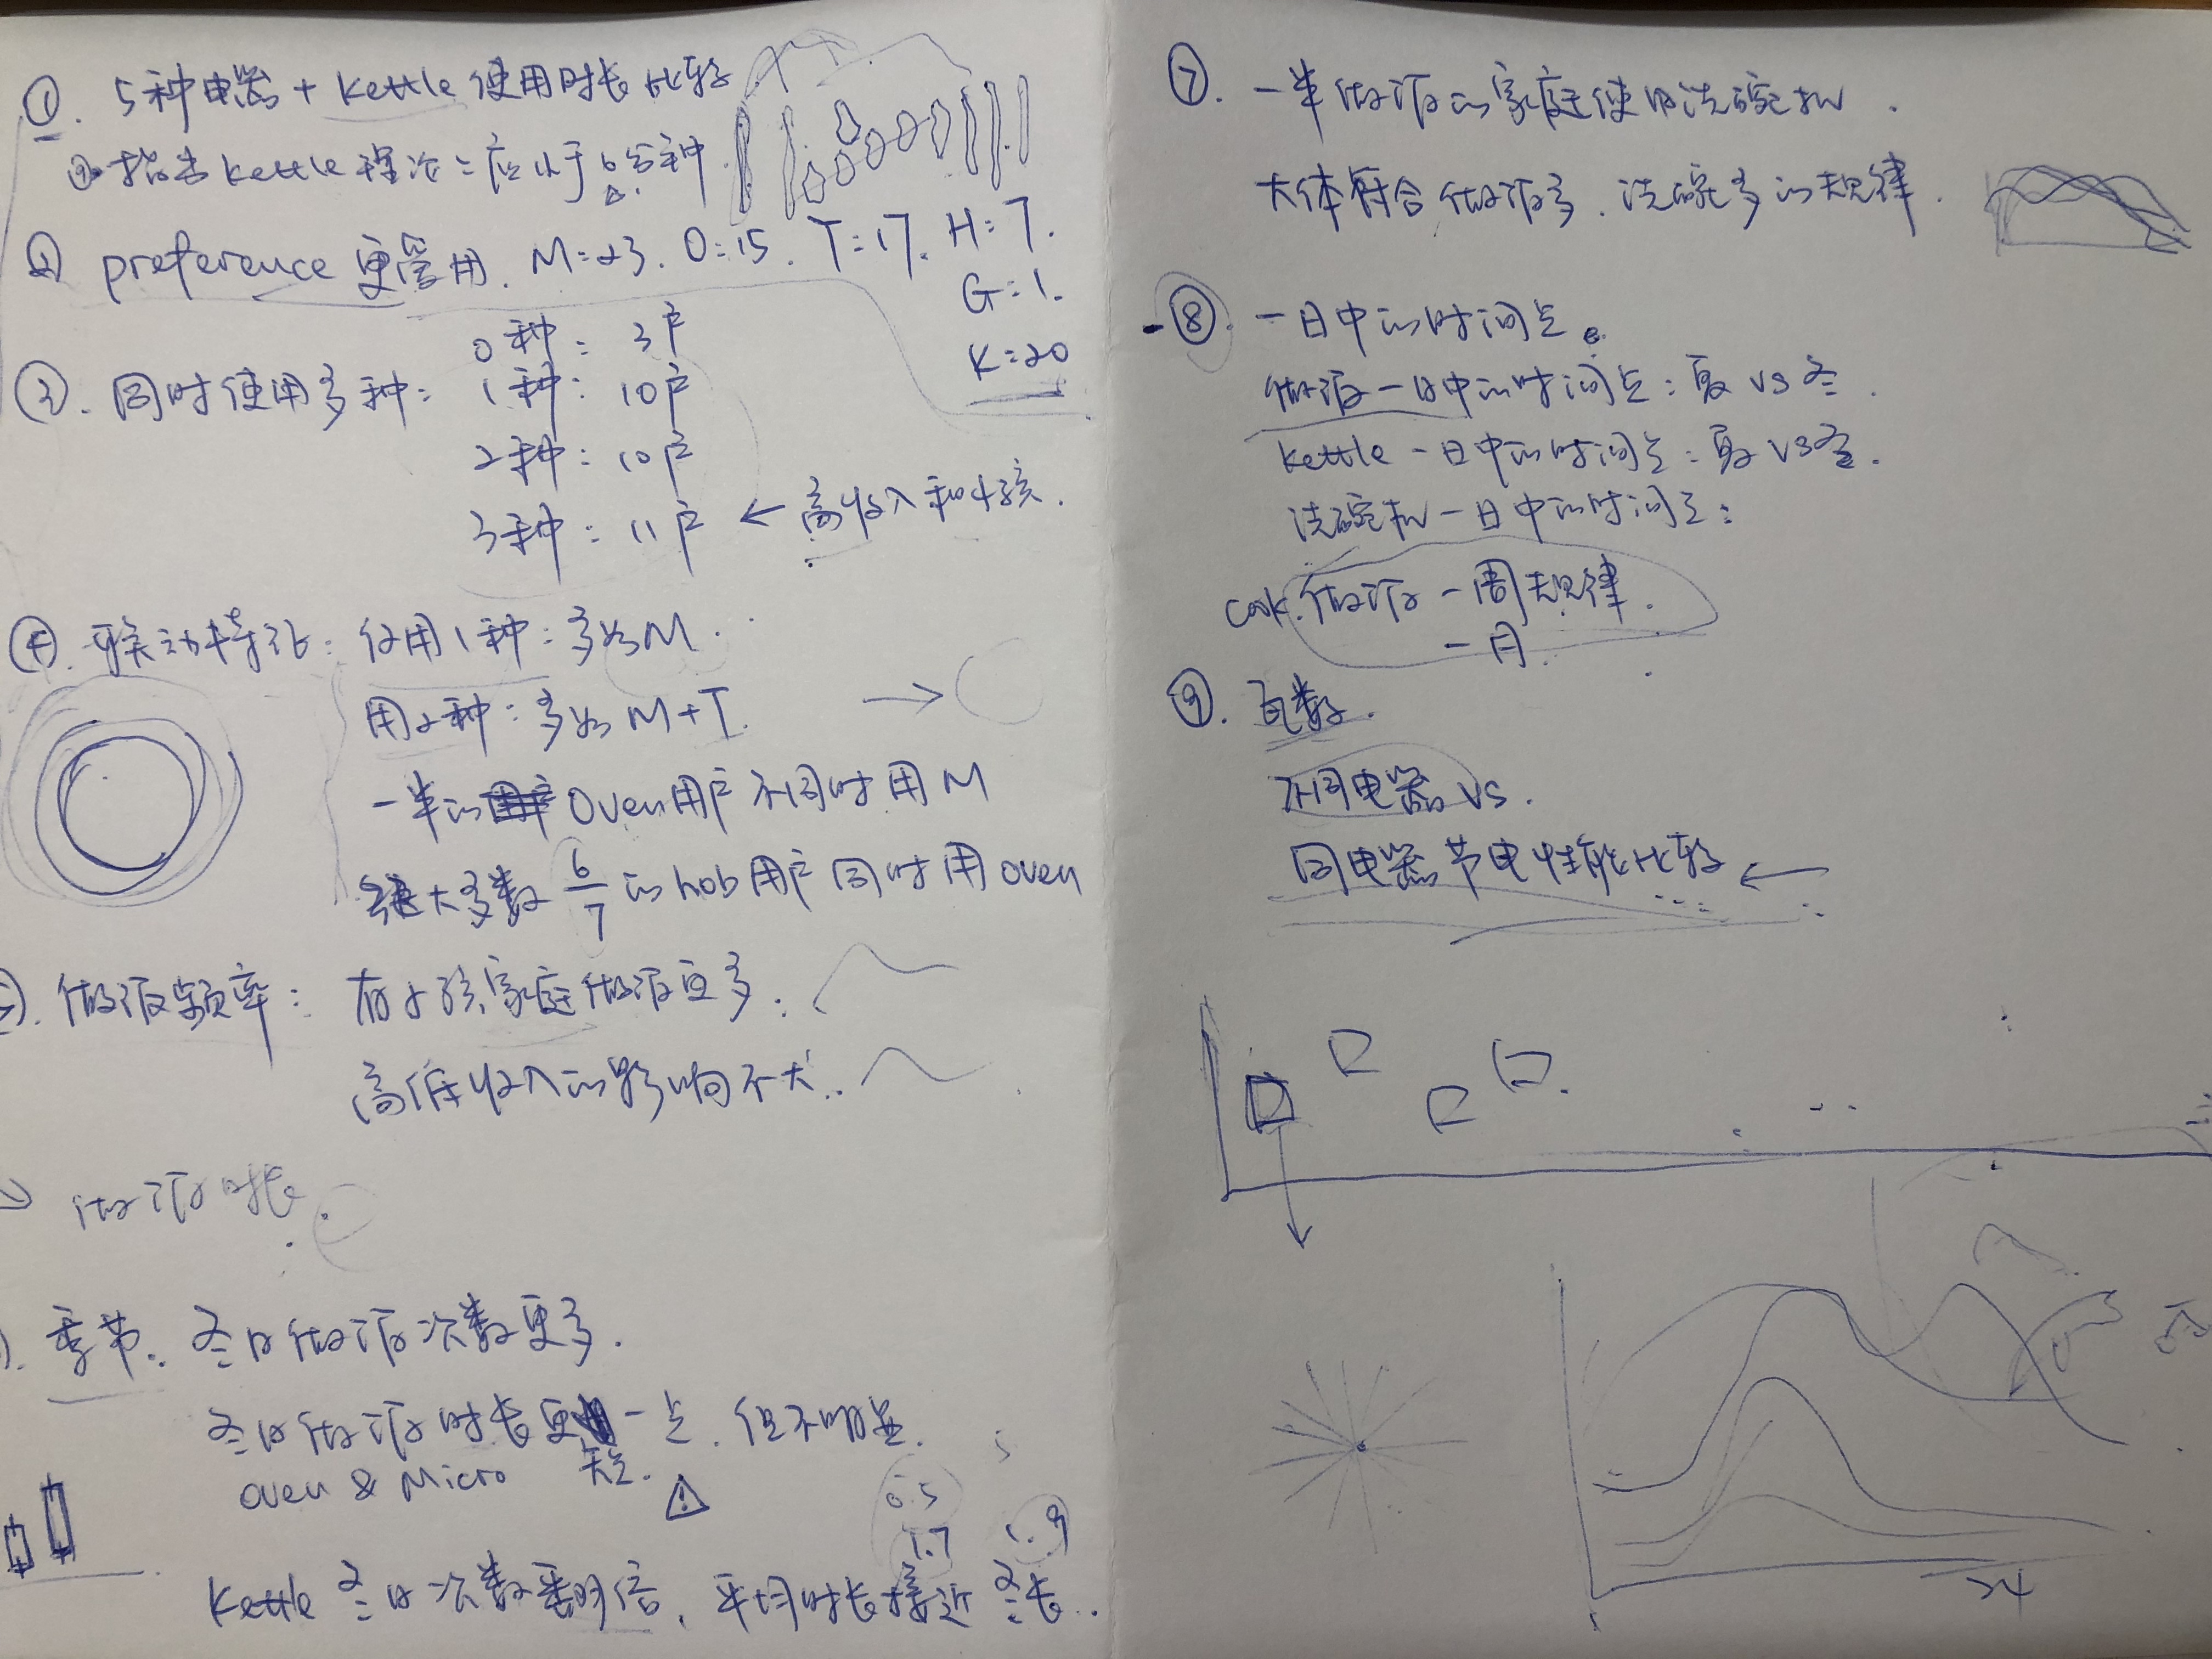 ①. 5种电器 + kettle 使用时长比较
kettle 理论: 应小于6分钟
② preference 更常用. M=23. O=15. T=17. H=7.
G=1.
K=20
③. 同时使用多种:
0种: 3户
1种: 10户
2种: 10户
3种: 11户 ← 高收入和小孩.
④. 联动特征: 仅用1种: 多为M.
用2种: 多为M+T. →
一半的 Oven用户不同时用M
绝大多数 6/7 的hob用户同时用oven
做饭频率: 有小孩家庭做饭更多.
高低收入的影响不大.
做饭时长.
季节. 冬日做饭次数更多.
冬日做饭时长更 一点. 但不明显.
oven & Micro 短.
0.5
1.7 1.9
kettle 冬日次数翻倍, 平均时长接近 冬长.
⑦. 一半做饭的家庭使用洗碗机.
大体符合做饭多. 洗碗多的规律.
⑧. 一日中的时间点.
做饭一日中的时间点: 夏 vs 冬.
kettle 一日中的时间点: 夏 vs 冬.
洗碗机一日中的时间点:
cook. 做饭一周规律.
一月.
⑨. 瓦数.
不同电器 vs.
同电器节电性能比较 ←
24